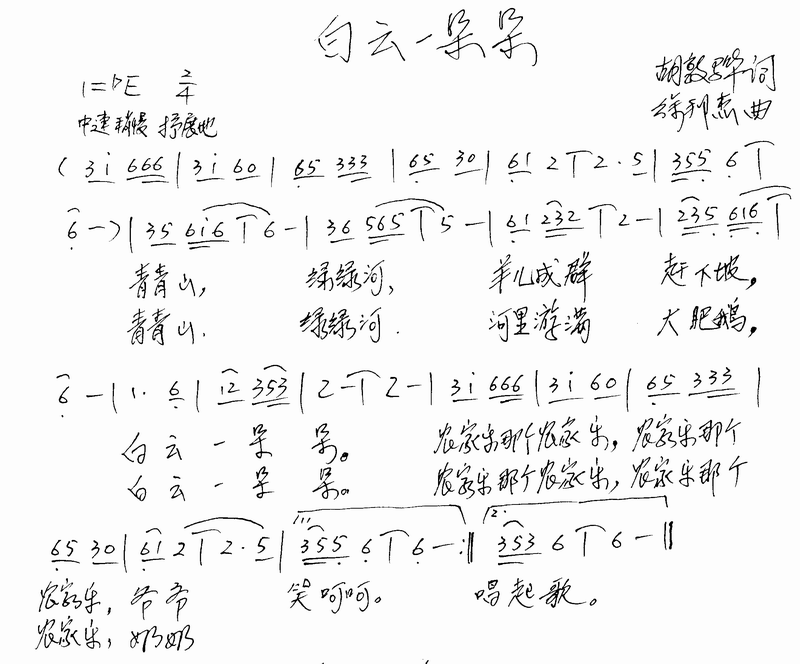 白云一朵朵
1=♭E 2/4
胡敦骅词
徐利杰曲
中速稍慢 抒展地
( 3 i 666 | 3 i 60 | 65 333 | 65 30 | 61 2 | 2. 5 | 355 6 |
6 -) | 35 6i6 | 6 - | 36 565 | 5 - | 61 232 | 2 - | 235 616 |
青青山, 绿绿河, 羊儿成群 赶下坡,
青青山. 绿绿河. 河里游满 大肥鹅,
6 - | 1. 6 | 12 353 | 2 - | 2 - | 3 i 666 | 3 i 60 | 65 333 |
白云一朵朵。 农家乐那个农家乐, 农家乐那个
白云一朵朵。 农家乐那个农家乐, 农家乐那个
65 30 | 61 2 | 2. 5 | 1. 355 6 | 6 - :‖ 2. 353 6 | 6 - ‖
农家乐, 爷爷 笑呵呵。 唱起歌。
农家乐, 奶奶